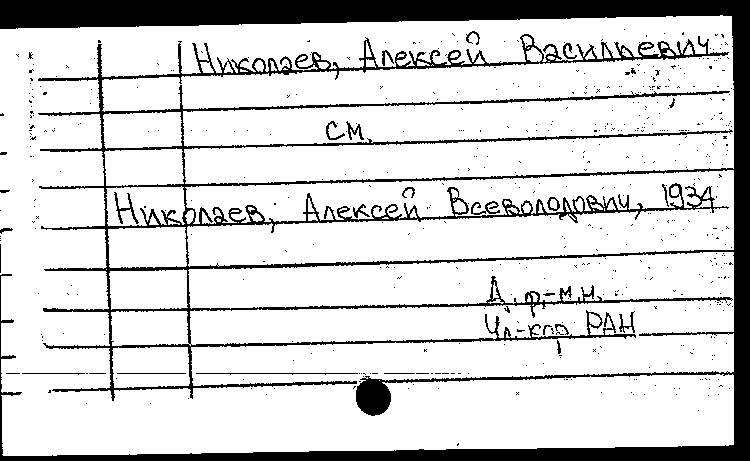 Николаев, Алексей Васильевич
см.
Николаев, Алексей Всеволодович, 1934
Д. ф.-м.н.
Чл.-кор. РАН